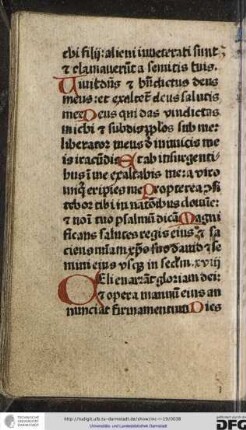 chi filij: alieni inueterati sunt
⁊ claudicauerūt a semitis suis.
Uiuit dn̄s ⁊ bn̄dictus deus
meus: et exaltet᷑ deus salutis
mee Deus qui das vindictas
michi ⁊ subdis pp̄los sub me:
liberator meus d inimicis me
is iracūdis Et ab insurgenti
bus ī me exaltabis me: a viro
iniq̄ eripies me Propterea ꝯfi
tebor tibi in natōnibus dom̄e:
⁊ noī tuo psalmū dicā Magni
ficans salutes regis eius ⁊ fa
ciens mīam xp̄o suo dauid ⁊ se
mini eius vsq̄ in sec̄lm. xviij
Celi enarrāt gloriam dei:
⁊ opera manuū eius an
nunciat firmamentum Dies
http://tudigit.ulb.tu-darmstadt.de/show/
Universitäts- und Landesbibliothek Darmstadt
DFG